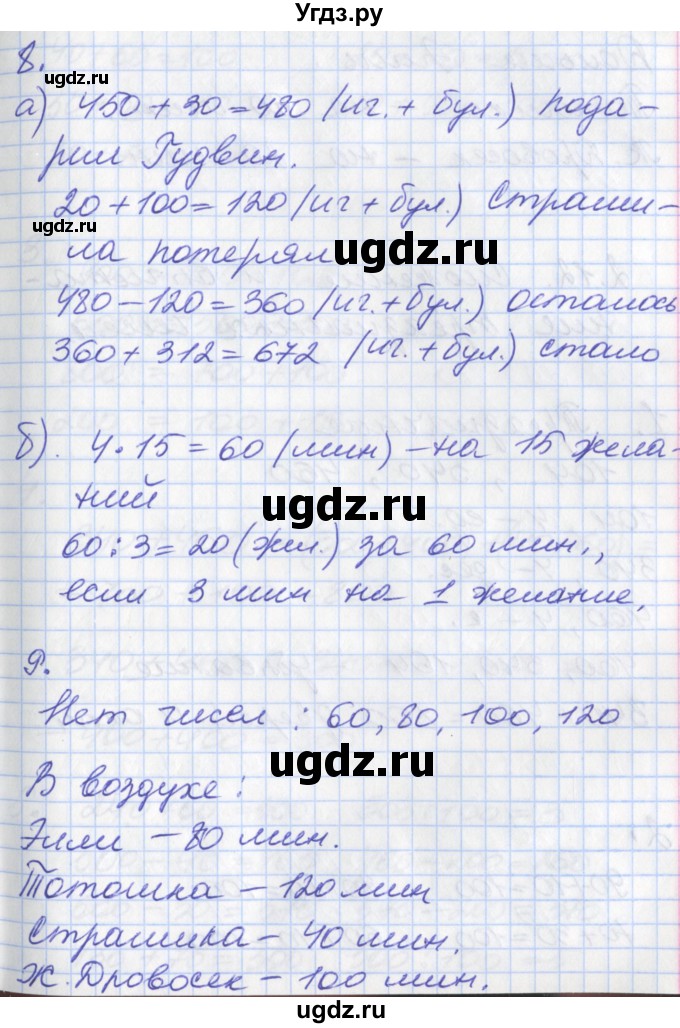 Угдз.ру
8.
ugdz.ru
ugdz.ru
а) 450 + 30 = 480 (иг. + бул.) пода-
рил Гудвин.
ugdz.ru
20 + 100 = 120 (иг + бул.) Страши-
ла потерял
ugdz.ru
480 - 120 = 360 (иг. + бул.) осталось
360 + 312 = 672 (иг. + бул.) стало
б). 4 · 15 = 60 (мин) - на 15 жела-
ний
ugdz.ru
60 : 3 = 20 (жел.) за 60 мин.,
если 3 мин на 1 желание.
9.
Нет чисел : 60, 80, 100, 120
ugdz.ru
В воздухе :
Элли - 80 мин.
Тотошка - 120 мин
ugdz.ru
Страшила - 40 мин.
Ж. Дровосек - 100 мин.
ugdz.ru